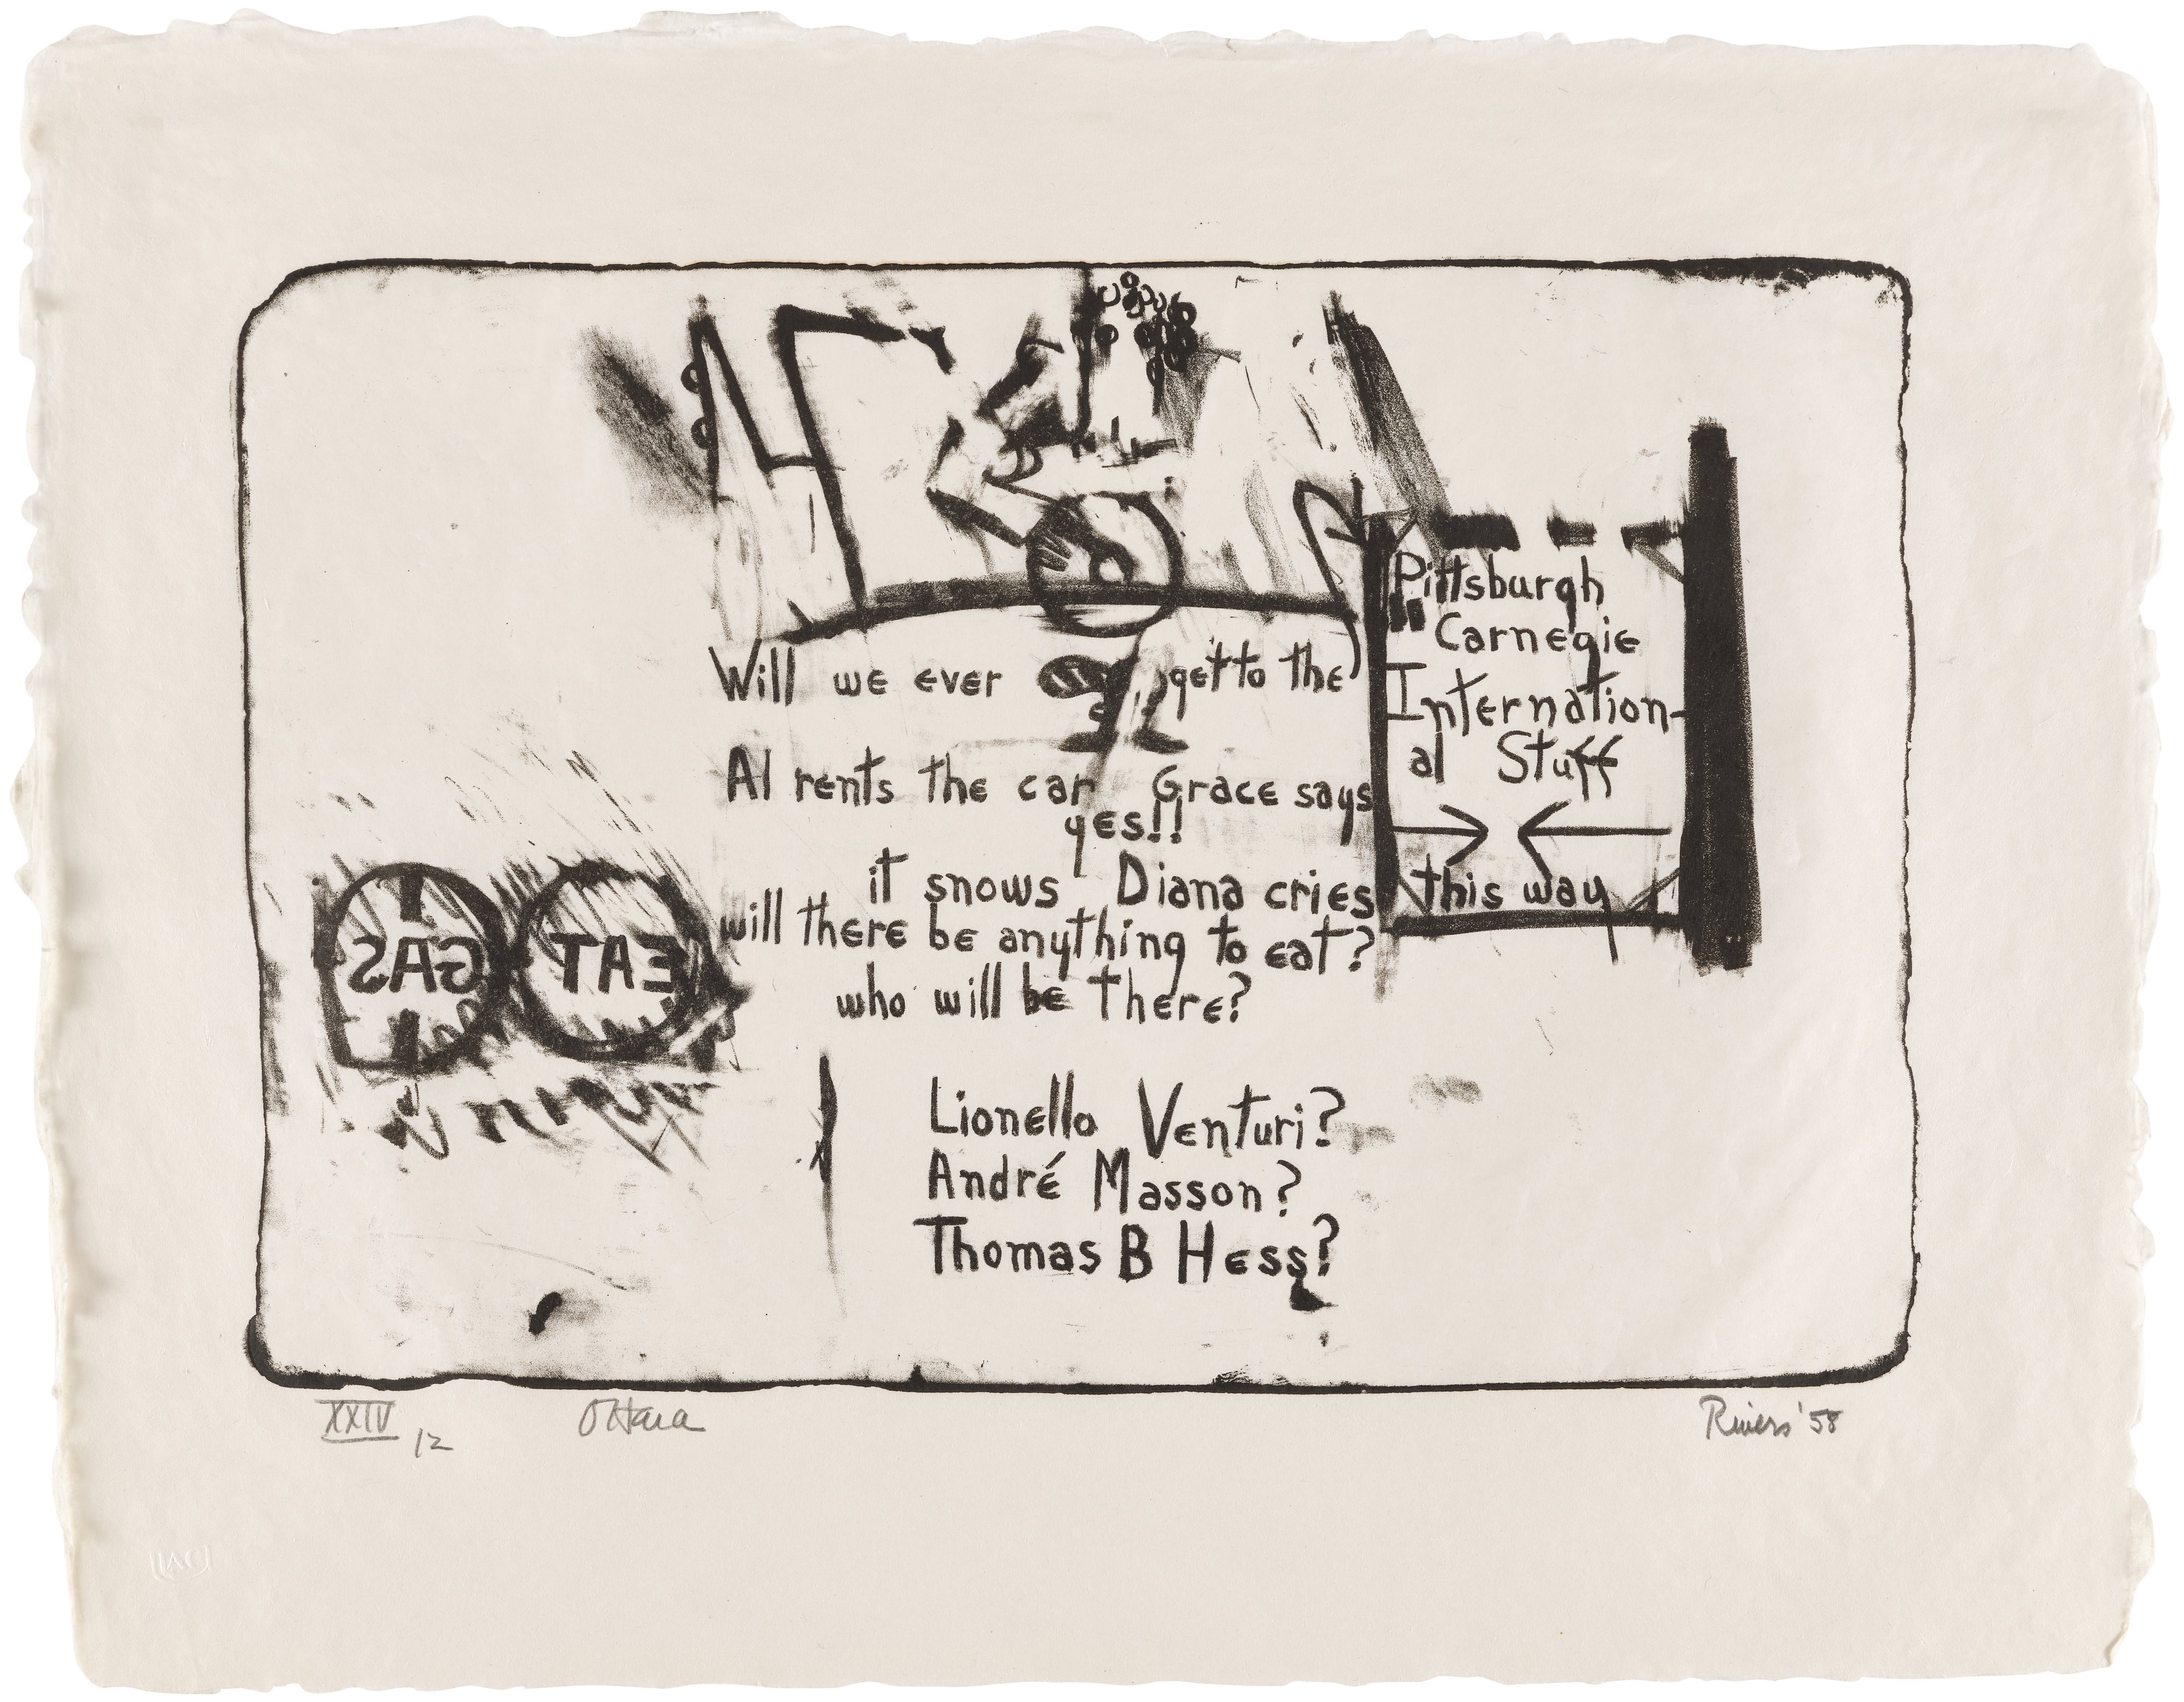 Will we ever get to the
Pittsburgh
Carnegie
Internation-
al Stuff
this way
Al rents the car Grace says
yes!!
it snows Diana cries
will there be anything to eat?
who will be there?
GAS EAT
Lionello Venturi?
André Masson?
Thomas B Hess?
XXIV
12
O'Hara
Rivers '58